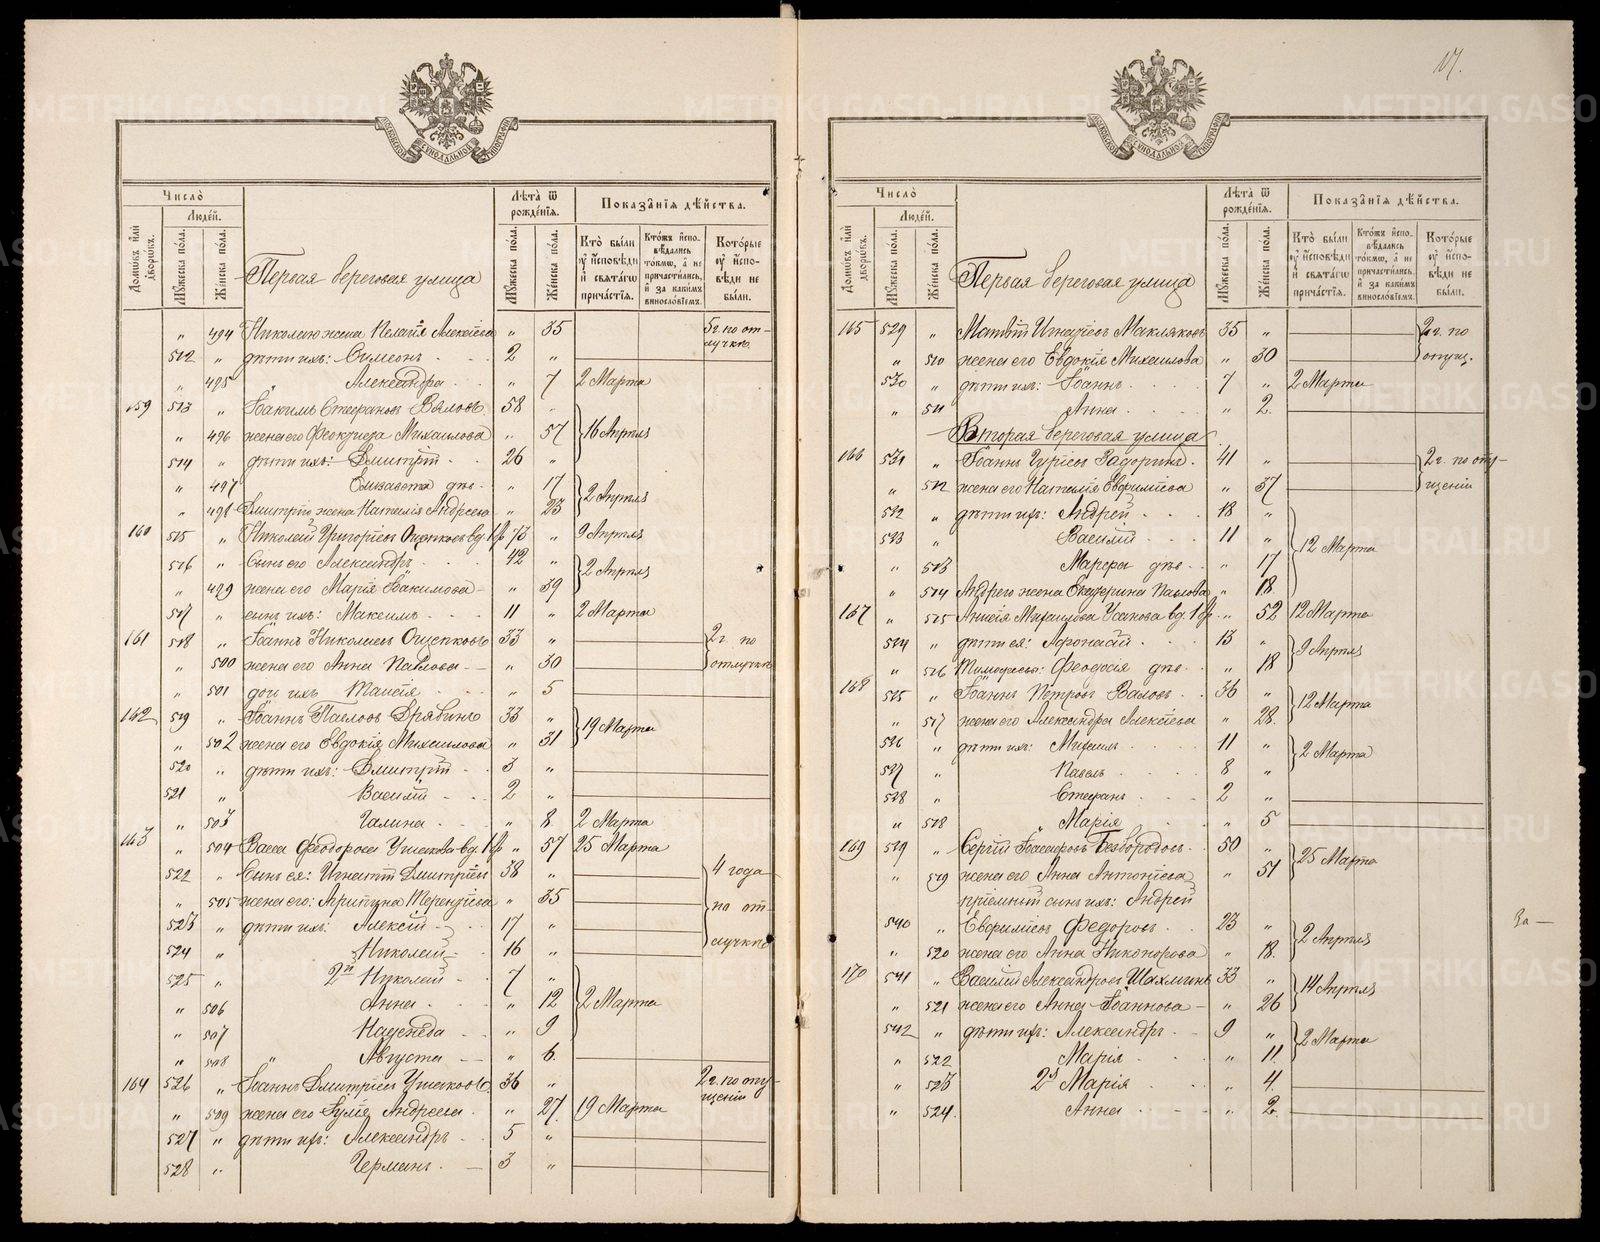 17.
Число̀
Людей.
Домѡвъ илѝ дворѡвъ.
Мꙋжеска пола.
Женска пола.
Первая береговая улица
Лѣта̀ ѿ рожденїѧ.
Мꙋжеска пола.
Женска пола.
Показанїѧ дѣйства.
Кто̀ были оу҆ исповѣди и҆ свѧтагѡ причастїѧ.
Ктожъ исповѣдались токмѡ, а҆ не причастились, и҆ за какимъ винословїемъ.
Которые оу҆ исповѣди не были.
„ 494 Николаю жена Пелагія Алексѣева „ 35 5 г. по от-
лучкѣ.
512 „ дѣти ихъ: Симеонъ 2 „
„ 495 Александра „ 7 2 Марта
159 513 „ Іоакимъ Стефановъ Вяловъ 58 „
„ 496 жена его Михаилова „ 57 16 Апрѣля
514 „ дѣти ихъ: Димитрій 26 „
„ 497 Елизавета дѣв. „ 17 2 Апрѣля
„ 498 Димитрію жена Наталія Андреева „ 23
160 515 „ Николай Григорьевъ Ощепковъ вд. 1 бр. 73 „ 9 Апрѣля
516 „ Сынъ его Александръ 42 „ 2 Апрѣля
„ 499 жена его Марія Іоакимова „ 39
517 „ сынъ ихъ: Максимъ 11 „ 2 Марта
161 518 „ Іоаннъ Николаевъ Ощепковъ 33 „ 2 г. по
„ 500 жена его Анна Павлова „ 30 отлучкѣ
„ 501 дочь ихъ Таисія „ 5
162 519 „ Іоаннъ Павловъ Дрявинъ 33 „ 19 Марта
„ 502 жена его Евдокія Михаилова „ 31
520 „ дѣти ихъ: Димитрій 3 „
521 „ Василій 2 „
„ 503 Галина „ 8 2 Марта
163 „ 504 Васса Феодорова Ушакова вд. 1 бр. „ 57 25 Марта
522 „ Сынъ ея: Игнатій Димитріевъ 38 „ 4 года
„ 505 жена его: Агрипина Терентіева „ 35 по от-
523 „ дѣти ихъ: Алексій 17 „ лучкѣ
524 „ Николай 16 „
525 „ 2й Николай 7 „
„ 506 Анна „ 12 2 Марта
„ 507 Надежда „ 9
„ 508 „ Августа „ 6
164 526 „ Іоаннъ Димитріевъ Ушаковъ 36 „ 2 г. по опу-
щенію
„ 509 жена его Іулія Андреева „ 27. 19 Марта
527 „ дѣти ихъ: Александръ 5 „
528 „ Германъ 3 „
Число̀
Людей.
Домѡвъ илѝ дворѡвъ.
Мꙋжеска пола.
Женска пола.
Первая береговая улица
Лѣта̀ ѿ рожденїѧ.
Мꙋжеска пола.
Женска пола.
Показанїѧ дѣйства.
Кто̀ были оу҆ исповѣди и҆ свѧтагѡ причастїѧ.
Ктожъ исповѣдались токмѡ, а҆ не причастились, и҆ за какимъ винословїемъ.
Которые оу҆ исповѣди не были.
165 529 „ Матвій Игнатіевъ Макляковъ 35 „ 2 г. по
„ 510 жена его Евдокія Михаилова „ 30 опущ.
530 „ дѣти ихъ: Іоаннъ 7 „ 2 Марта
„ 511 Анна „ 2.
Вторая береговая улица
166 531 „ Іоаннъ Гуріевъ Задоринъ 41 „ 2 г. по опу-
„ 512 жена его Наталія Евфиміева „ 37 щенію
532 „ дѣти ихъ: Андрей 18 „
533 „ Василій 11 „ 12 Марта
„ 513 Марфа дѣв. „ 17
„ 514 Андрею жена Екатерина Павлова „ 18
167 „ 515 Анисія Михаилова Усанова вд. 1 бр. „ 52 12 Марта
534 „ дѣти ея: Афонасій 13 „ 9 Апрѣля
„ 516 Феодосія дѣв. „ 18
168 535 „ Іоаннъ Петровъ Валовъ 36 „ 12 Марта
„ 517 жена его Александра Алексѣева „ 28.
536 „ дѣти ихъ: Михаилъ 11 „ 2 Марта
537 „ Павелъ 8 „
538 „ Стефанъ 2 „
„ 518 Марія „ 5
169 539 „ Сергій Безбородовъ 50 „ 25 Марта
„ 519 жена его Анна Антоніева „ 51
пріемный сынъ ихъ: Андрей
540 „ Евфиміевъ Федоровъ 23 „ 2 Апрѣля
„ 520 жена его Анна Никонорова „ 18.
170 541 „ Василій Александровъ Шахминъ 33 „ 14 Апрѣля
„ 521 жена его Анна Іоаннова „ 26
542 „ дѣти ихъ: Александръ 9 „ 2 Марта
„ 522 Марія „ 11.
„ 523 2я Марія „ 4.
„ 524. Анна „ 2.
За —
METRIKI.GASO-URAL.RU